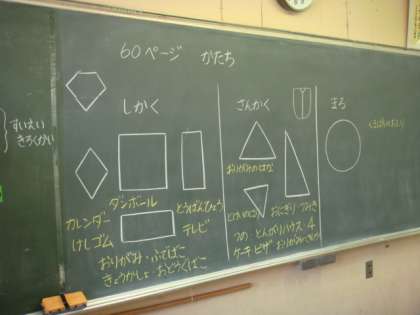 60ページ かたち
すいえい
きろくかい
しかく
ダンボール
とうばんひょう
カレンダー
テレビ
けしゴム
おりがみ・ふでばこ
きょうかしょ おどうぐばこ
さんかく
おにぎり つみき
つの とんがりハウス 4
ケーキ ピザ
まる